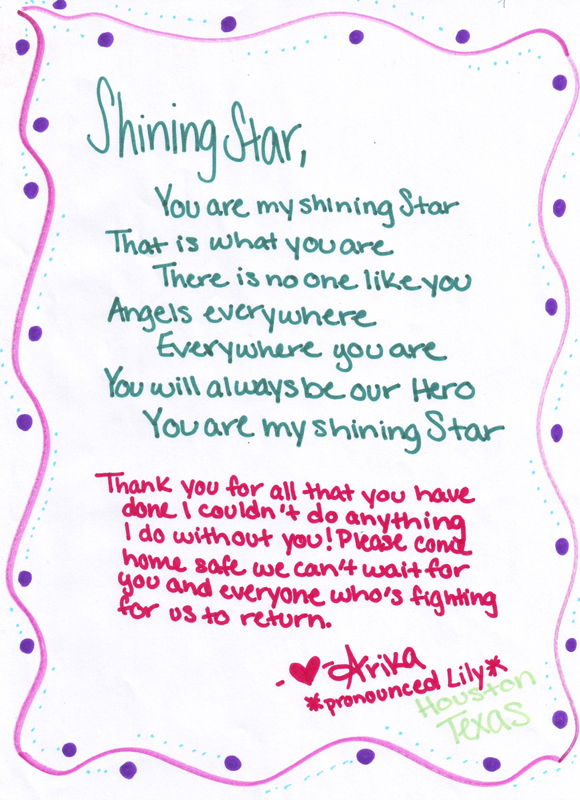 Shining Star,
You are my shining Star
That is what you are
There is no one like you
Angels everywhere
Everywhere you are
You will always be our Hero
You are my shining Star
Thank you for all that you have
done I couldn't do anything
I do without you! Please come
home safe we can't wait for
you and everyone who's fighting
for us to return.
-♥-Arika
*pronounced Lily*
Houston
Texas